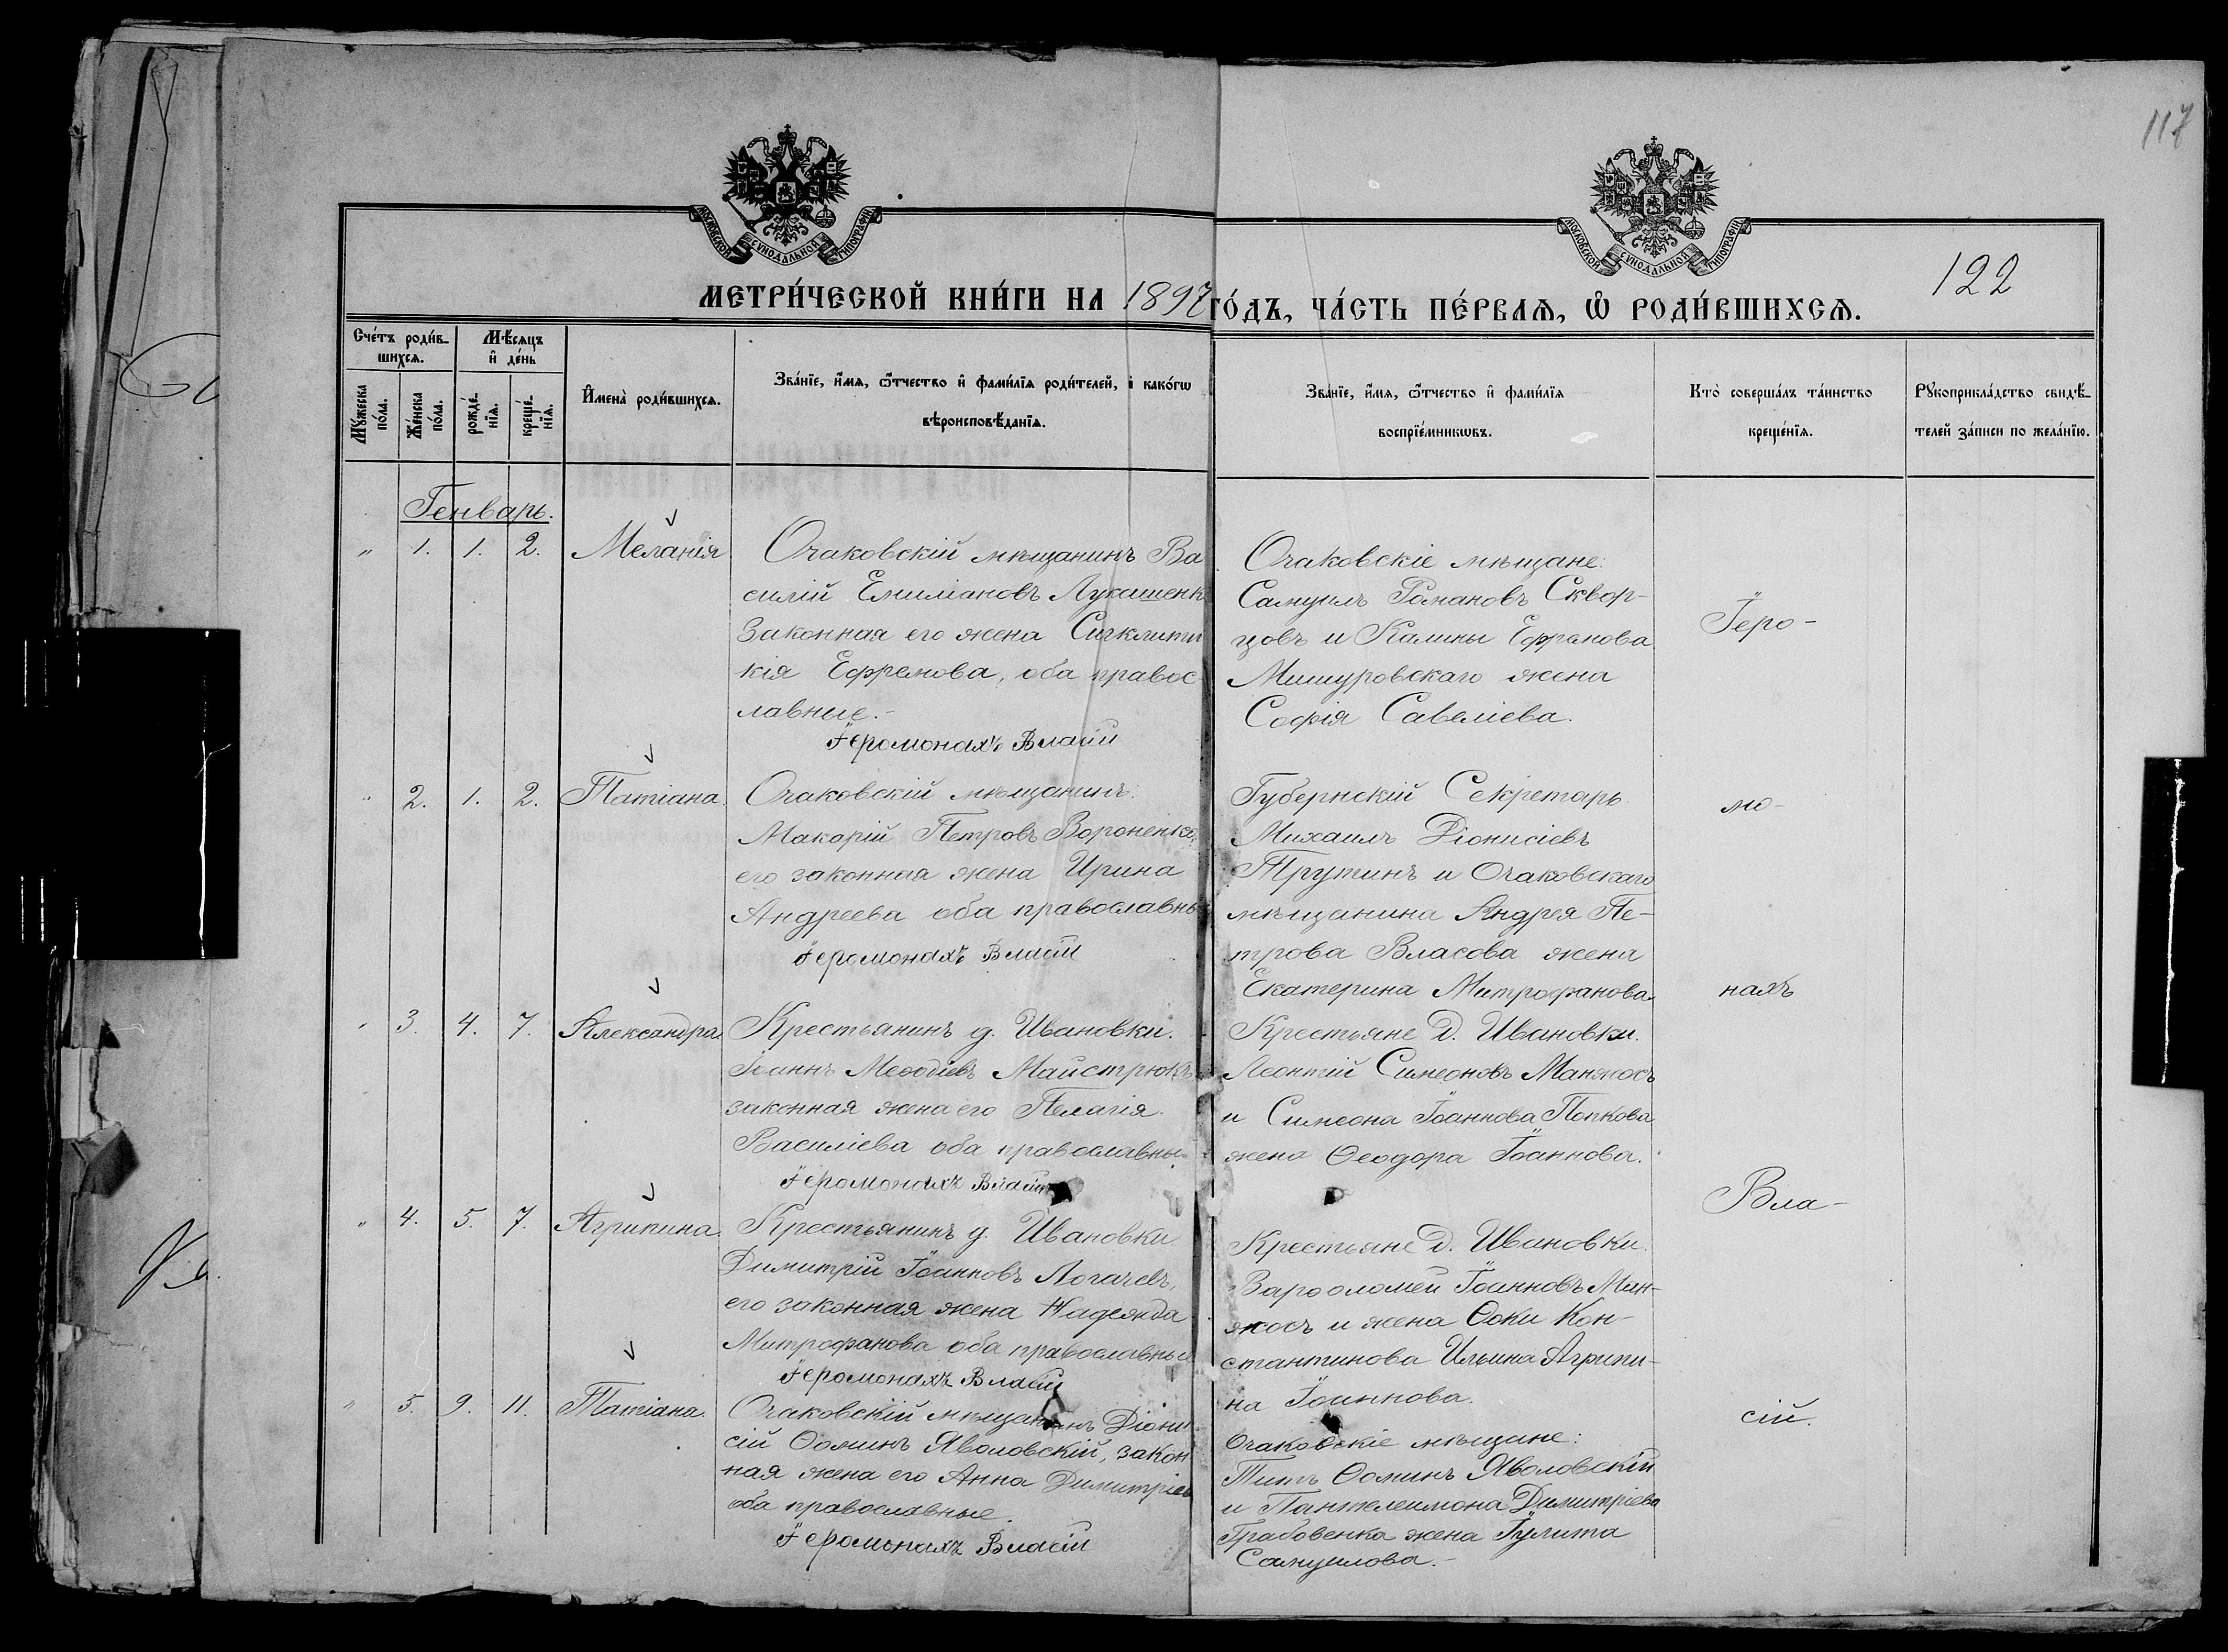 117
МОСКОВСКОЙ СУНОДАЛЬНОЙ ТИПОГРАФІИ
МОСКОВСКОЙ СУНОДАЛЬНОЙ ТИПОГРАФІИ
122
МЕТРИ́ЧЕСКОЙ КНИ́ГИ НА 1897 ГО́ДЪ, ЧА́СТЬ ПЕ́РВАѦ, Ѡ҆ РОДИ́ВШИХСѦ.
Сче́тъ роди́в-
шихсѧ.
Мѣ́сѧцъ
и҆ де́нь
Мꙋ́жеска
по́ла.
Же́нска
по́ла.
рожде́-
нїѧ.
креще́-
нїѧ.
И҆мена̀ роди́вшихсѧ.
Зва́нїе, и҆́мѧ, ѻ҆́тчество и҆ фами́лїѧ роди́телей, и҆ како́гѡ
вѣроисповѣ́данїѧ.
Зва́нїе, и҆́мѧ, ѻ҆́тчество и҆ фами́лїѧ
воспрїе́мникѡвъ.
Кто̀ соверша́лъ та́инство
креще́нїѧ.
Рꙋкоприкла́дство свидѣ́-
телей за́писи по жела́нїю.
Генварь.
" 1. 1. 2. Меланія
Очаковскій мѣщанинъ Ва
силій Емиліановъ Лукашенк
законная его жена Сигклити
кія Ефремова, оба правос
лавные.-
Іеромонахъ Власій
Очаковскіе мѣщане:
Самуилъ Романовъ Сквор-
цовъ и Калины Ефремова
Мишуровскаго жена
Софія Савеліева.
Іеро-
" 2. 1. 2. Татіана
Очаковскій мѣщанинъ:
Макарій Петровъ Вороненко,
его законная жена Ирина
Андреева оба православны
Іеромонахъ Власій
Губернскій Секретарь
Михаилъ Діонисіевъ
Трутинъ и Очаковскаго
мѣщанина Андрея Пе-
трова Власова жена
Екатерина Митрофанова.
мо-
нахъ
" 3. 4. 7. Александра
Крестьянинъ д. Ивановки.
Іоаннъ Меѳодіевъ Майстрюкъ
законная жена его Пелагія
Василіева оба православны
Іеромонахъ Власій
Крестьяне д. Ивановки.
Леонтій Симеоновъ Манжосъ
и Симеона Іоаннова Попкова
жена Ѳеодора Іоаннова.
Вла-
" 4. 5. 7. Агрипина.
Крестьянинъ д. Ивановки
Димитрій Іоанновъ Логачевъ,
его законная жена Надежда
Митрофанова оба православные
Іеромонахъ Власій
Крестьяне д. Ивановки.
Варѳоломей Іоанновъ Ман-
жосъ и жена Ѳоки Кон-
стантинова Ильина Агрипи-
на Іоаннова.
сій.
" 5. 9. 11. Татіана.
Очаковскій мѣщанинъ Діони
сій Ѳоминъ Яволовскій, закон
ная жена его Анна Димитріев
оба православные.
Іеромонахъ Власій
Очаковскіе мѣщане:
Титъ Ѳоминъ Яволовскій
и Пантелеимона Димитріева
Грабовенка жена Іулита
Самуилова.-